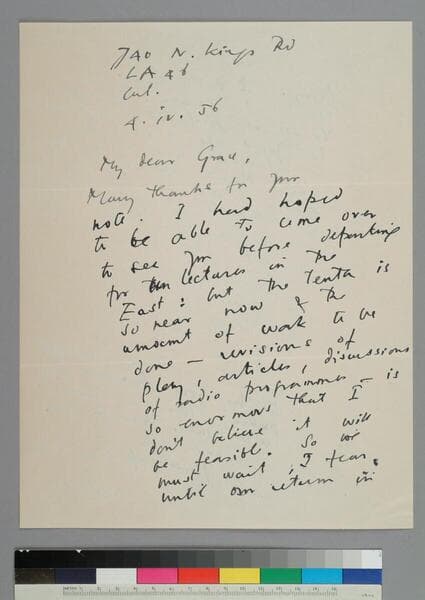 740 N. Kings Rd
LA 46
Cal.
4. iv. 56
My dear Grace,
Many thanks for your
note. I had hoped
to be able to come over
to see you before departing
for lectures in the
East: but the tenth is
so near now & the
amount of work to be
done – revisions of
play, articles, discussions
of radio programmes – is
so enormous that I
don't believe it will
be feasible. So we
must wait, I fear,
until our return in